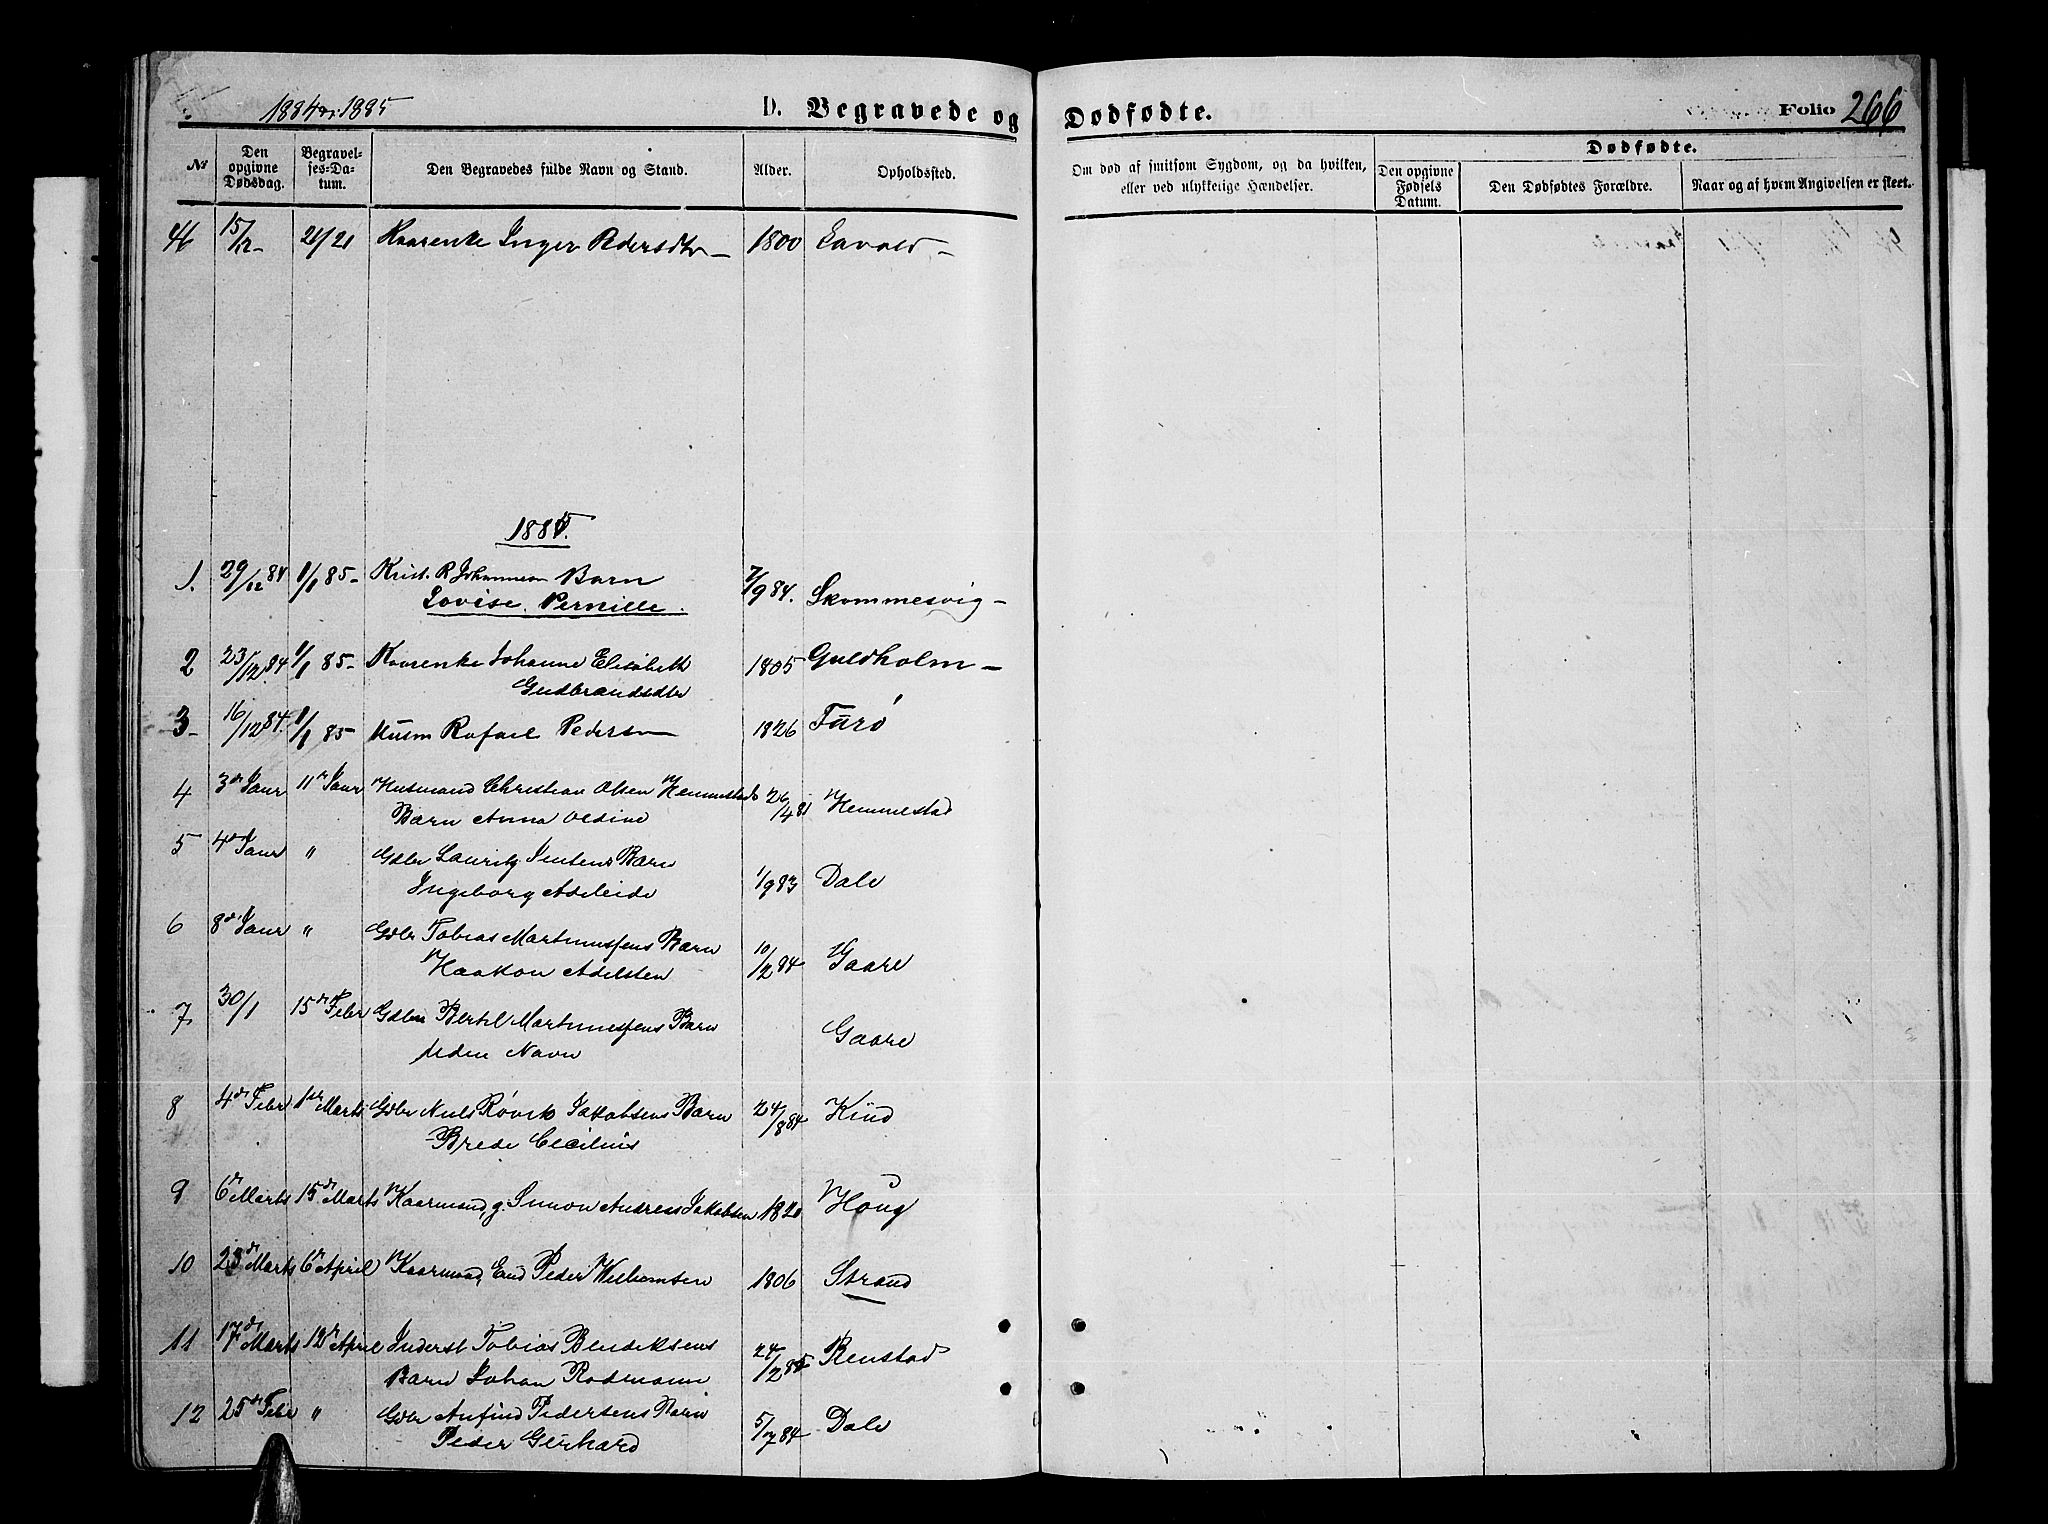 1884 og 1885
D. Begravede og Dødfødte.
Folio 266
№
Den opgivne Dødsdag.
Begravelses-Datum.
Den Begravedes fulde Navn og Stand.
Alder.
Opholdssted.
Om død af smitsom Sygdom, og da hvilken, eller ved ulykkelige Hændelser.
Dødfødte.
Den opgivne Fødsels Datum.
Den Dødfødtes Forældre.
Naar og af hvem Angivelsen er skeet.
15/12 - 21/21 Kaarenke Inger Pedersdtr - 1800 Lavold -
1885.
1. 29/12 84 1/1 85 - Krist. R Johannesen Barn 7/9 84. Skommesvig -
Lovise Pernille.
2 23/12 84 1/1 85 - Kaarenke Johanne Elisabeth 1805 Guldholm -
Gudbrandsdtr
3 - 16/12 84. 1/1 85 - Husm Rafael Pedersen 1826 Furö
4 3de Janr 11te Janr Husmand Christian Olsen Hemmestads 26/4 81 Hemmestad
Barn Anna Oldine
5 4de Janr " Gdbr Lauritz Jentens Barn
Ingeborg Adeleide 1/9 83 Dale
6 8de Janr " Gdbr Tobias Martinussens Barn
Haakon Adelsten 10/12 84 Gaare
7 30/1 15de Febr Gdbr Bertel Martinussens Barn
Uden Navn Gaare
8 4de Febr 1ste Marts Gdbr Niels Rövik Jakobsens Barn 24/8 84 Kind
Brede Cecilius
9 6te Marts 15de Marts Kaarmand, g. Simon Andreas Jakobsen 1820 Houg
10 23de Marts 6te April Kaarmand, Enk Peder Wilhemsen 1806 Strand
11 17de Marts 12te April Inderst Tobias Bendiksens 24/2 85 Renstad
Barn Johan Rodemann
12 25de Febr " Gdbr Anfind Pedersens Barn 5/7 84 Dale
Peder Gerhard